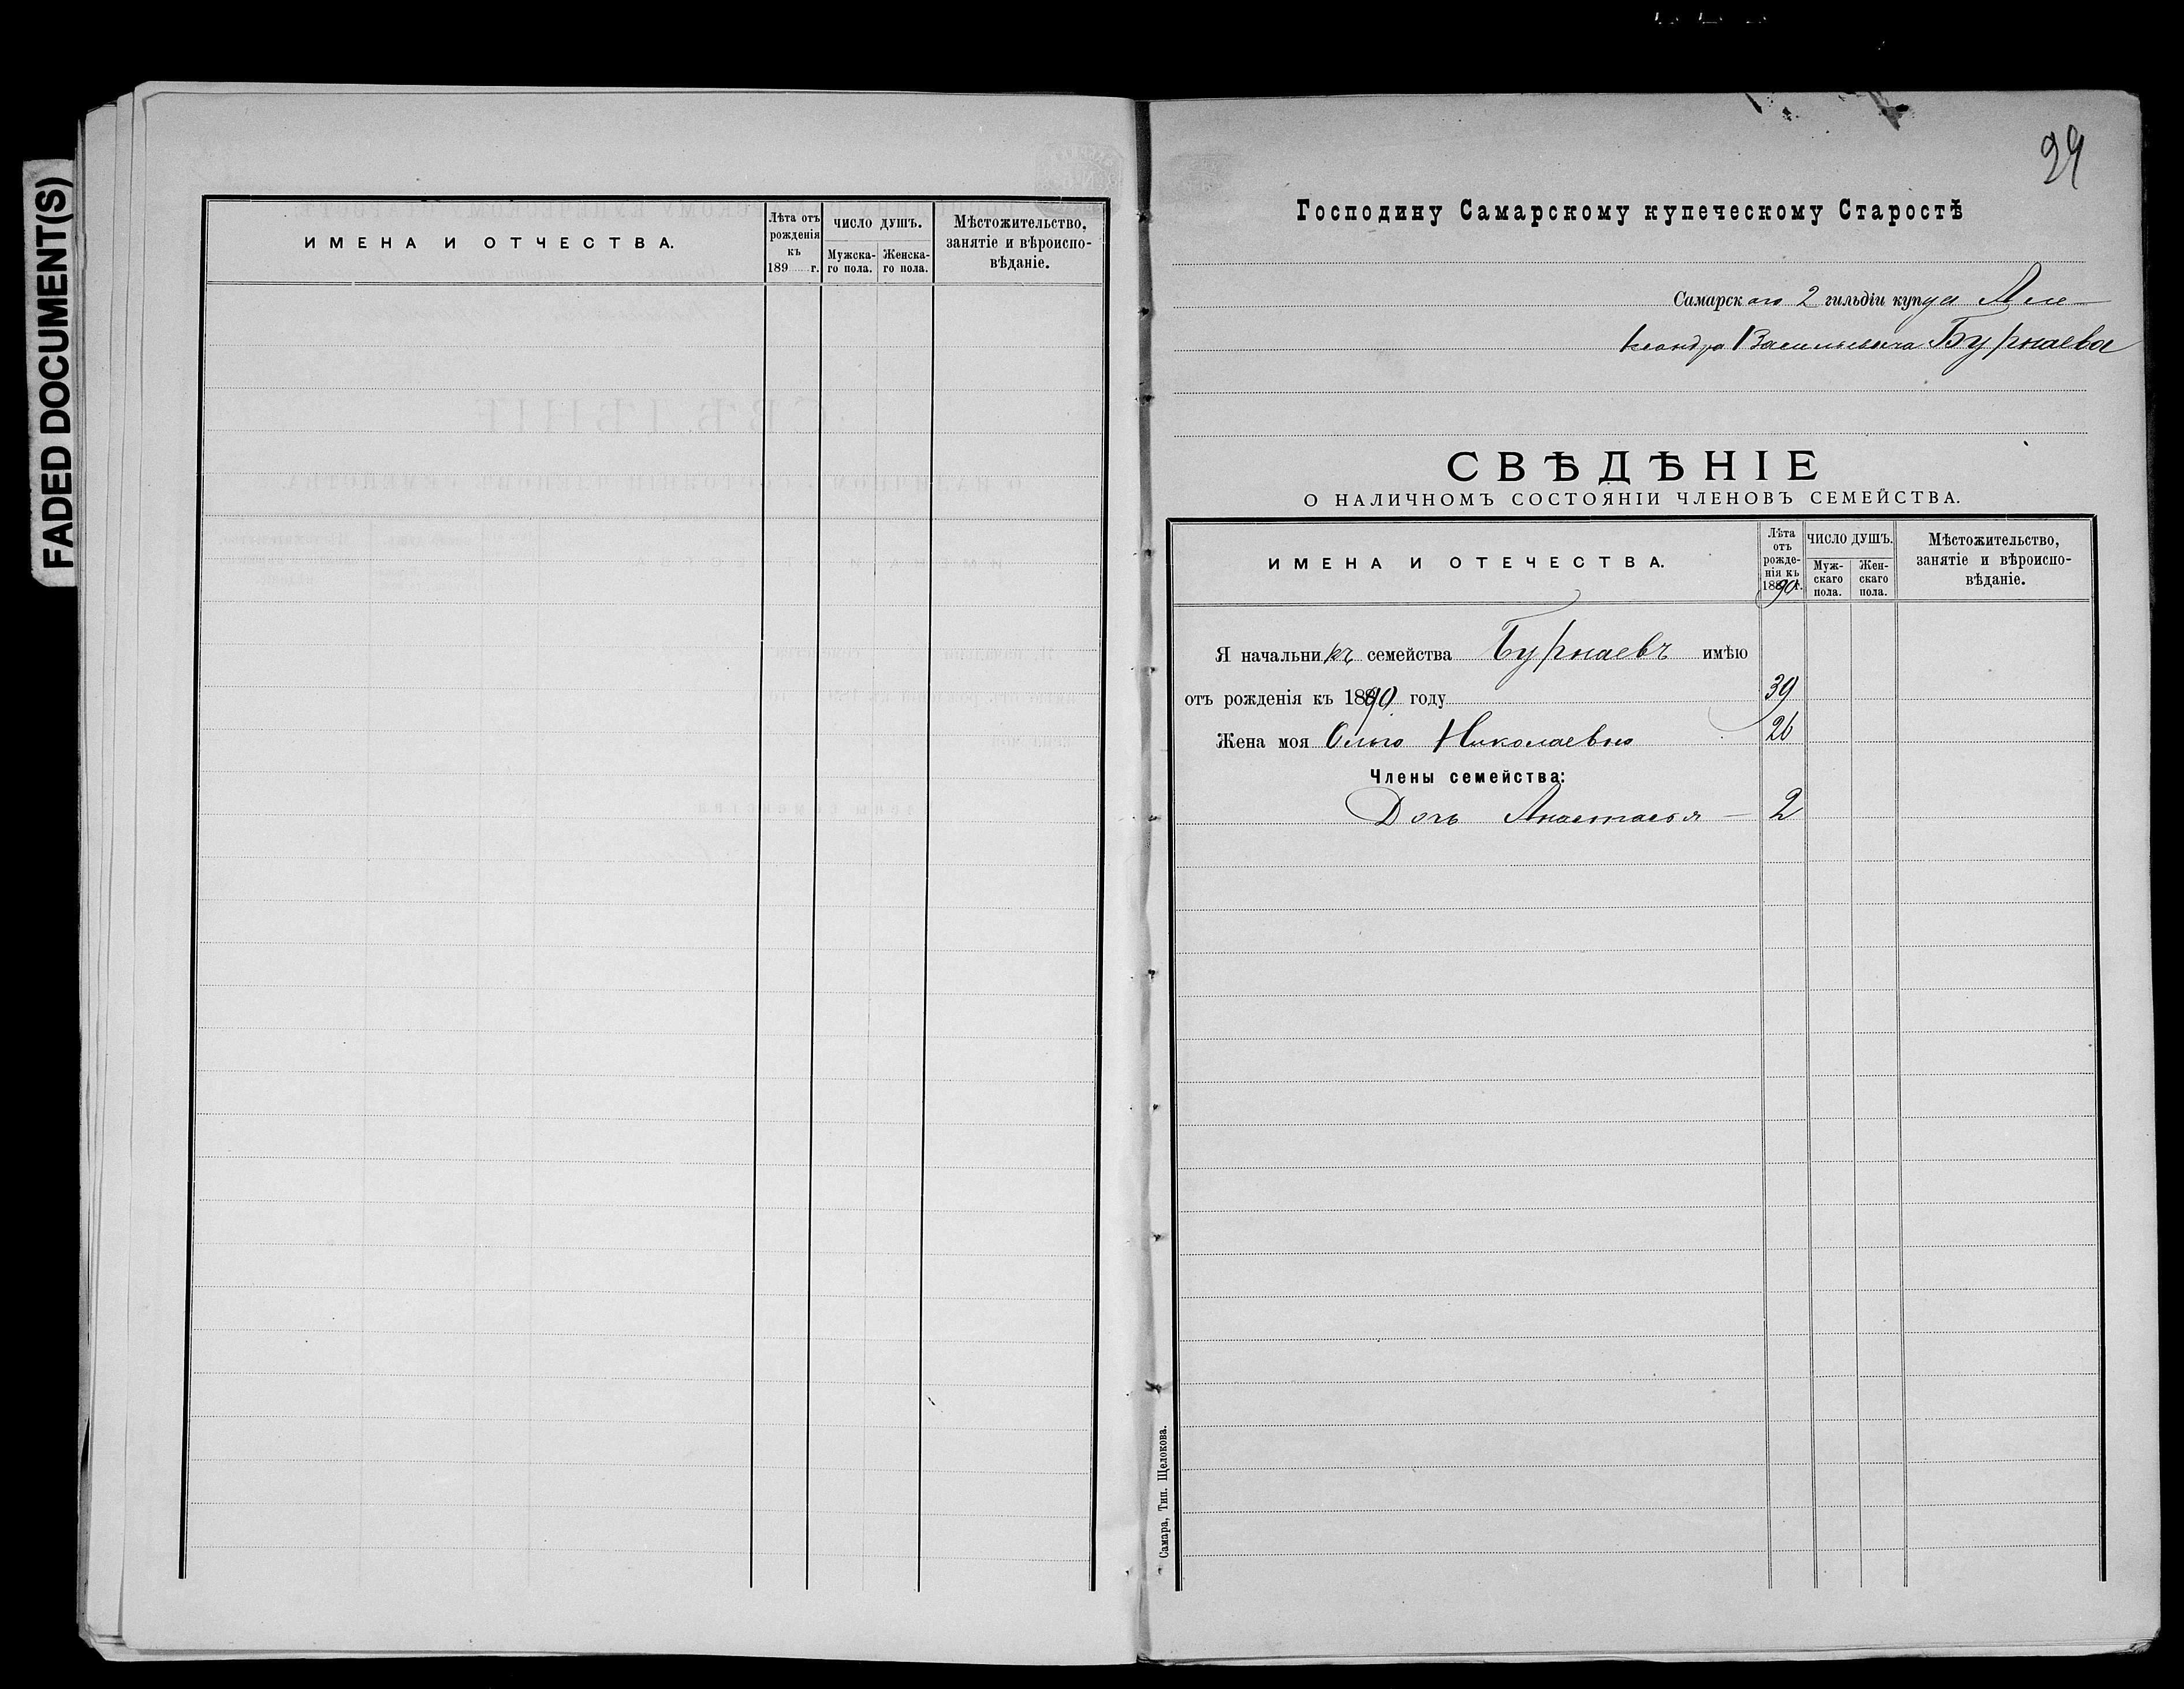 FADED DOCUMENT(S)
ИМЕНА И ОТЧЕСТВА.
Лѣта отъ рожденія къ 189 г.
ЧИСЛО ДУШЪ.
Мужска-го пола.
Женска-го пола.
Мѣстожительство, занятіе и вѣроиспо-вѣданіе.
29
Господину Самарскому купеческому Старостѣ
Самарскаго 2 гильдіи купца Але-
ксандра Васильевича Бурнаева
СВѢДѢНІЕ
О НАЛИЧНОМЪ СОСТОЯНІИ ЧЛЕНОВЪ СЕМЕЙСТВА.
ИМЕНА И ОТЕЧЕСТВА.
Лѣта отъ рожде-нія къ 1890 г.
ЧИСЛО ДУШЪ.
Муж-скаго пола.
Жен-скаго пола.
Мѣстожительство, занятіе и вѣроиспо-вѣданіе.
Я начальникъ семейства Бурнаевъ имѣю
отъ рожденія къ 1890 году 39
Жена моя Ольга Николаевна 26
Члены семейства:
Дочь Анастасья — 2
Самара, Тип. Щелокова.